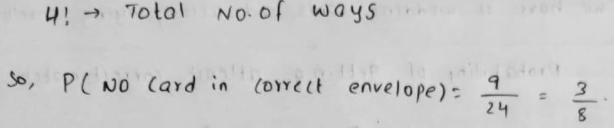 4! → Total No. of ways
So, P( No Card in correct envelope) = 9/24 = 3/8.